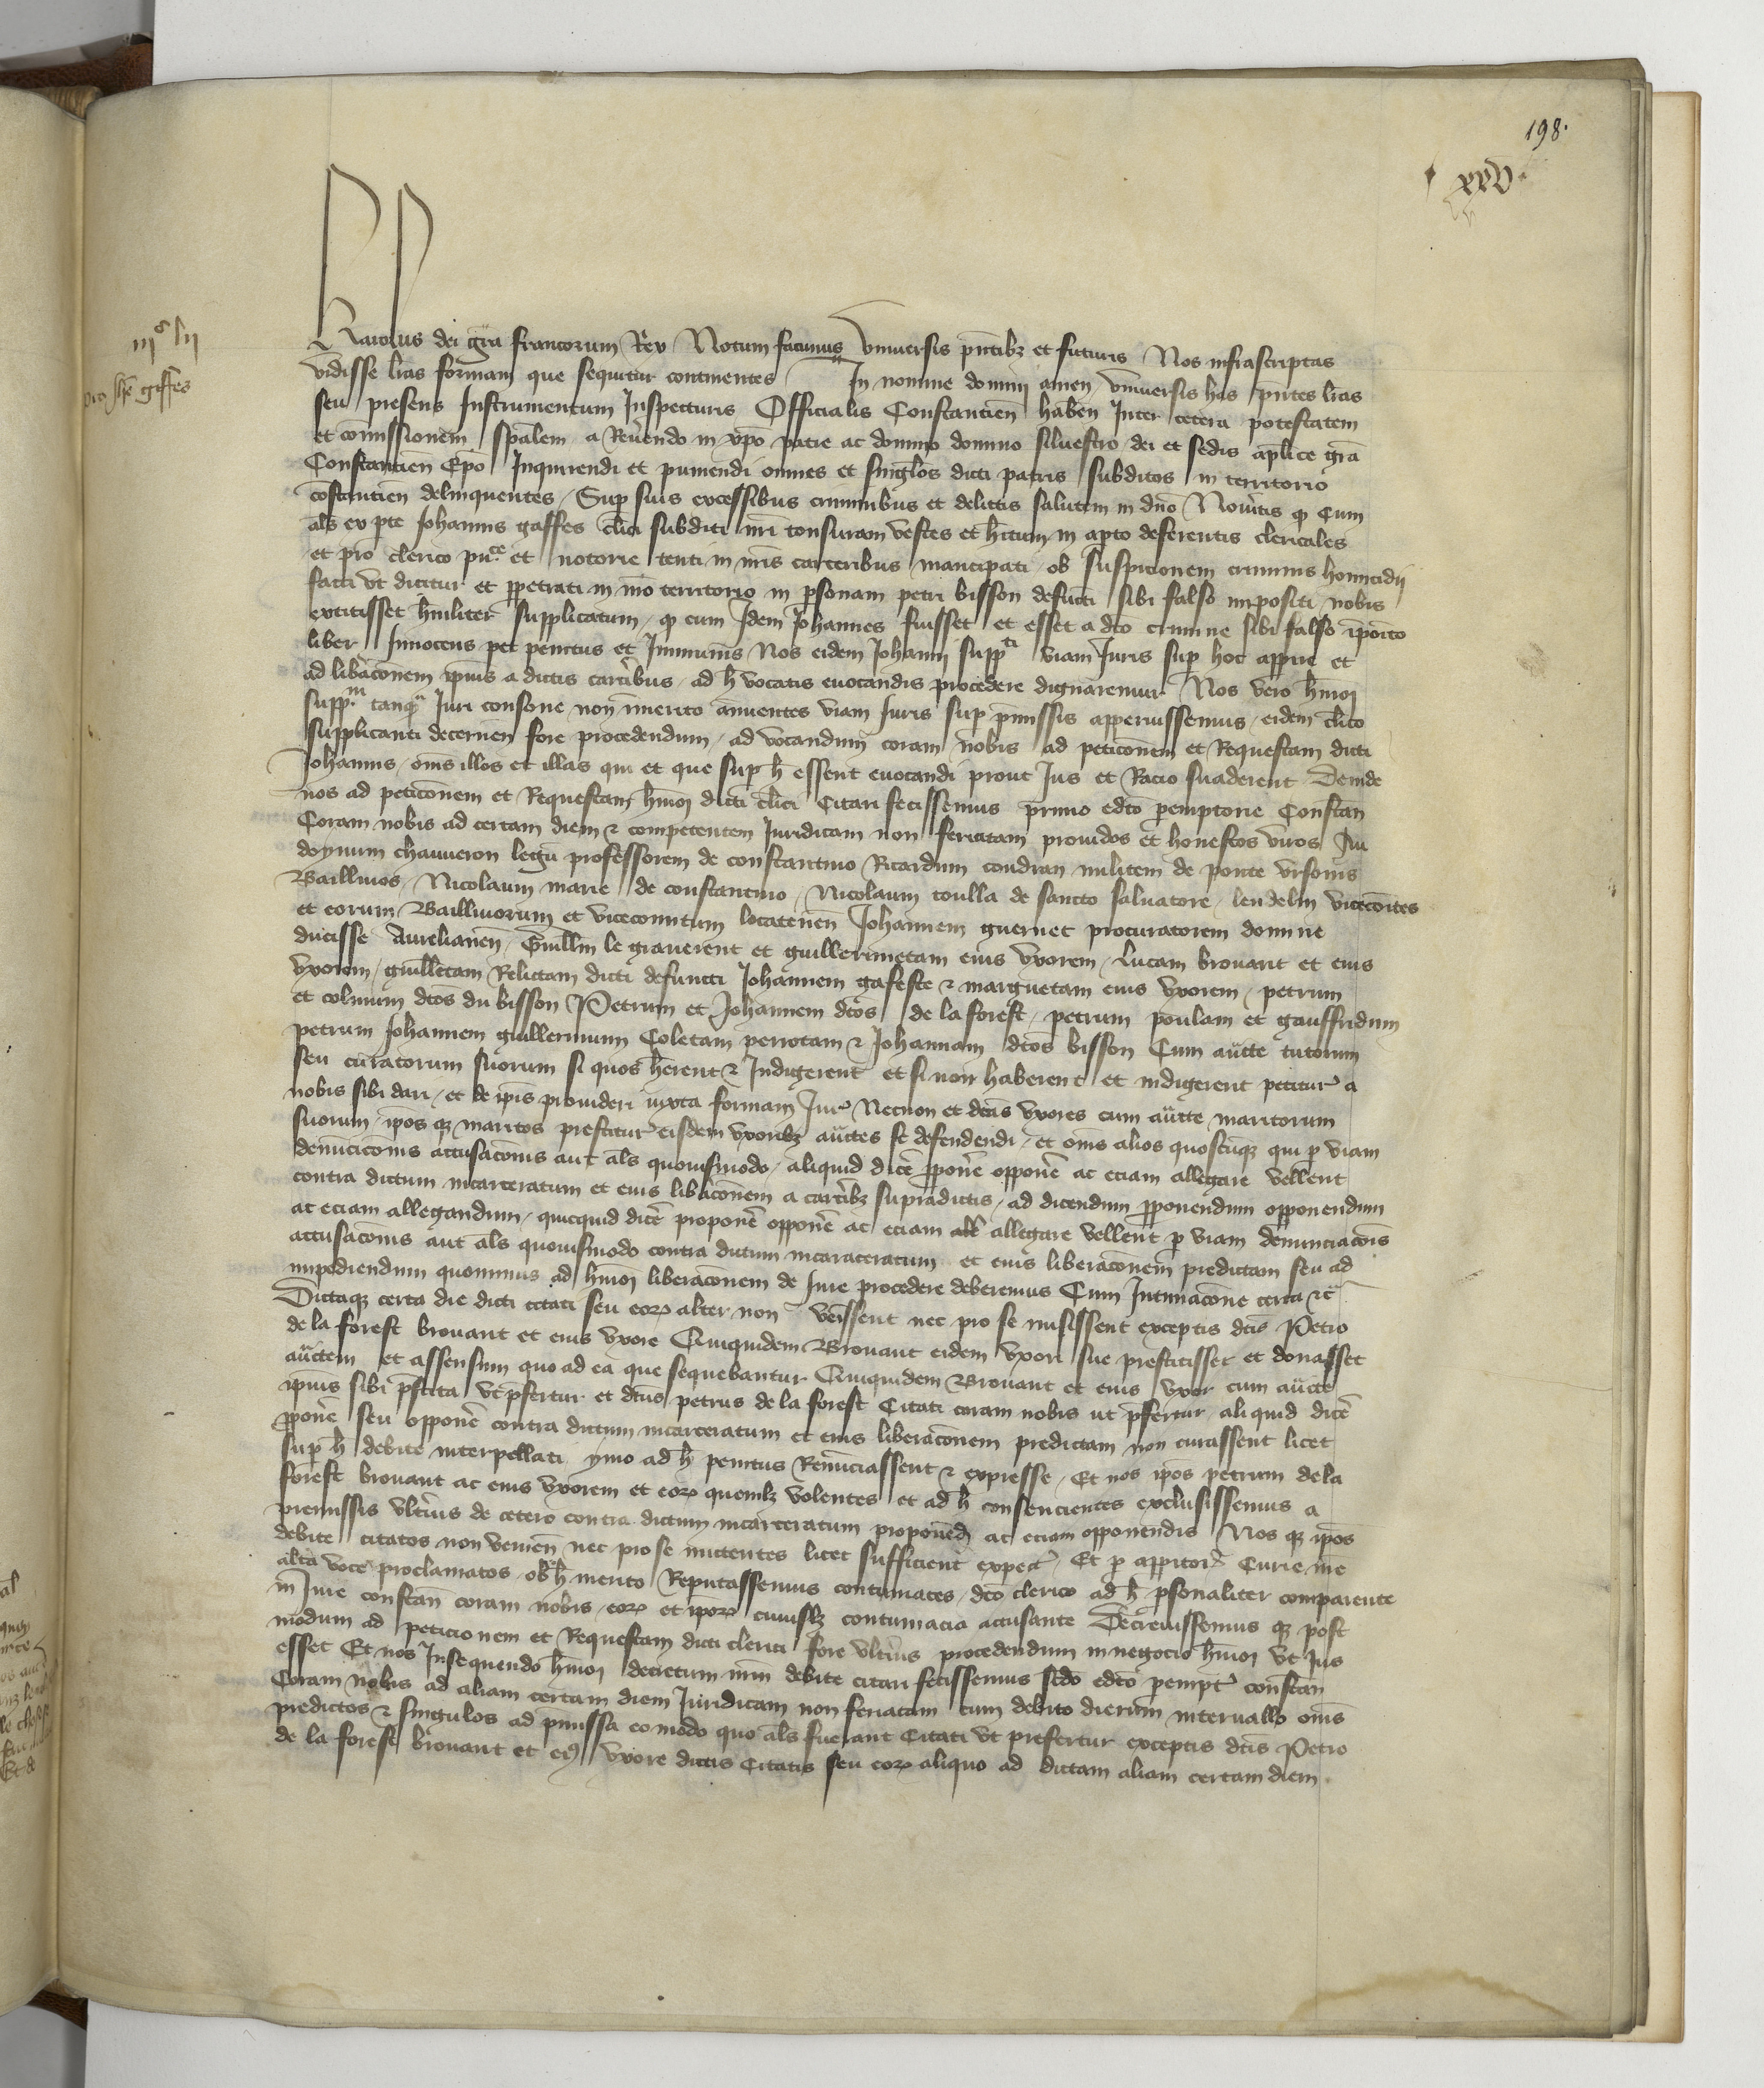 198.
xxv
iiijͨ lij
Karolus dei gra francorum Rex Notum facimus Vniuersis pntibz et futuris Nos infrascriptas
vidisse lras formam que sequitur continentes In nomine dominj amen vniuersis has pntes lras
seu presens Instrumentum Inspecturis Officialis Constantien haben Inter cetera potestatem
et comissionem spalem a Reuendo in xpo patre ac domino domino siluestro dei et sedis aplice gra
Constantien Epo Inquirendi et puniendi omnes et singlos dicti patris subditos in territorio
constantien delinquentes Sup suis excessibus criminibus et delictis salutem in dno Noueritis q Cum
als ex pte Johannis gaffes clici subditi nri tonsuram vestes et hitum in apto deferentis clericales
et pro clerico puce et notorie tenti in nris carceribus mancipati ob suspicionem criminis homicidij
facti vt dicitur et ppetrati in nro territorio in psonam petri bisson defucti sibi falso impositi nobis
extitisset humiliter supplicatum q cum Idem Johannes fuisset et esset a dco crimine sibi falso iposito
liber Innocens pet penitus et Immunis Nos eidem Johanni suppti viam Juris sup hoc appire et
ad liberaconem ipius a dictis carcibus ad h vocatis euocandis procedere dignaremur Nos vero hmoi
suppm tanqm Juri consone non imerito annuentes viam Juris sup pmissis apperuissemus eidem clico
supplicanti decernen fore procedendum ad vocandum coram nobis ad peticonem et Requestam dicti
Johannis oms illos et illas qui et que sup h essent euocandi prout Jus et Racio suaderent Deinde
nos ad peticonem et Requestam hmoi dicti clici Citari fecissemus primo edto pemptorie Constan
Coram nobis ad certam diem & competentem Juridicam non feriatam prouidos et honestos viros Au
doynum chauueron legu professorem de constantino Ricardum condran militem de ponte vrsonis
Baillinos Nicolaum marie de constantino Nicolaum toulla de sancto saluatore lendelin vicecoites
et eorum Bailliuorum et vicecomitum locatenen Johannem guernet procuratorem domine
ducisse Aurelianen Guillm le grauerent et guillermetam eius vxorem Lucam brouaut et eius
vxorem guilletam Relictam dicti defuncti Johannem gafeste & marguetam eius vxorem petrum
et colinum dtos du bisson Petrum et Johannem dtos de la forest petrum poulam et gauffridum
petrum Johannem guillermum Coletam perrotam & Johannam dtos bisson Cum autte tutorum
seu curatorum suorum si quos herent & Indigerent et si non haberent et indigerent petitur a
nobis sibi dari et de ipis prouideri iuxta formam Jur Necnon et dtas vxores cum autte maritorum
suorum ipos qz maritos prestitur eisdem vxoribz auttes se defendendi et oms alios quoscuqz qui p viam
denuciconis accusaconis aut als quouismodo aliquid dice pponere opponere ac eciam allegare vellent
contra dictum incarceratum et eius liberaconem a carcibz supradictis ad dicendum pponendum opponendum
ac eciam allegandum quicquid dice proponere opponere ac eciam allegare vellent p viam denunciacois
accusaconis aut als quouismodo contra dictum incaraceratum et eius liberaconem predictam seu ad
impediendum quominus ad hmoi liberaconem de Jure procedere deberemus Cum Intimacone certa &c
Dictaqz certa die dicti citati seu eorz alter non veissent nec pro se misissent exceptis dtis Petro
de la forest brouaut et eius vxore Quiquidem Brouaut eidem vxori sue prestitisset et donasset
auttem et assensum quo ad ea que sequebantur Quiquidem Brouaut et eius vxor cum autte
ipius sibi pstita vt pfertur et dtus petrus de la forest Citati coram nobis ut pfertur aliquid dice
pponere seu opponere contra dictum incarceratum et eius liberaconem predictam non curassent licet
sup h debite interpellati ymo ad h penitus Renuciassent & expresse Et nos ipos petrum de la
forest brouaut ac eius vxorem et eorz quemlz volentes et ad h consencientes exclusissemus a
premissis vlterius de cetero contra dictum incarceratum proponend ac eciam opponendis Nos qz ipos
debite citatos non venien nec pro se mittentes licet sufficient expect Et p appitor Curie nre
alta voce proclamatos ob h merito Reputassemus contumaces dco clerico ad h psonaliter comparente
in Jure constan coram nobis eorz et iporz cuiuslz contumacia accusante Decreuissemus qz post
modum ad peticionem et Requestam dicti clerici fore vlterius procedendum in negocio hmoi vt Jus
esset Et nos Insequendo hmoi decretum nrm debite citari fecissemus scdo edto pempt constan
Coram nobis ad aliam certam diem Juridicam non feriatam cum debito dierum interuallo oms
predictos & singulos ad pmissa eo modo quo als fuerant Citati vt prefertur exceptis dtis Petro
de la forest brouaut et eius vxore dictis Citatis seu eorz aliquo ad dictam aliam certam diem